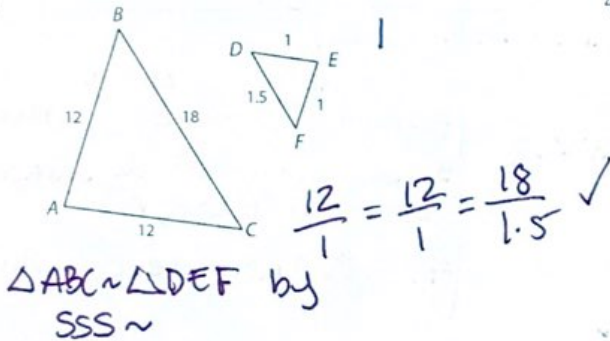 B
D 1 E
1.5 1
F
12 18
A 12 C
12/1 = 12/1 = 18/1.5 ✓
△ABC ~ △DEF by
SSS ~